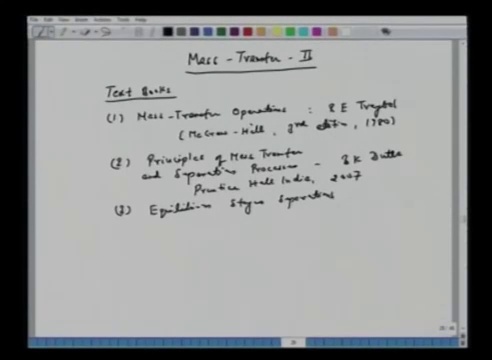 Mass-Transfer-II
Text Books
(1) Mass-Transfer Operations : R E Treybal
(McGraw-Hill, 3rd edition, 1980)
(2) Principles of Mass Transfer
and Separation Processes - B K Dutta
Prentice Hall India, 2007
(3) Equilibrium Stages Separations